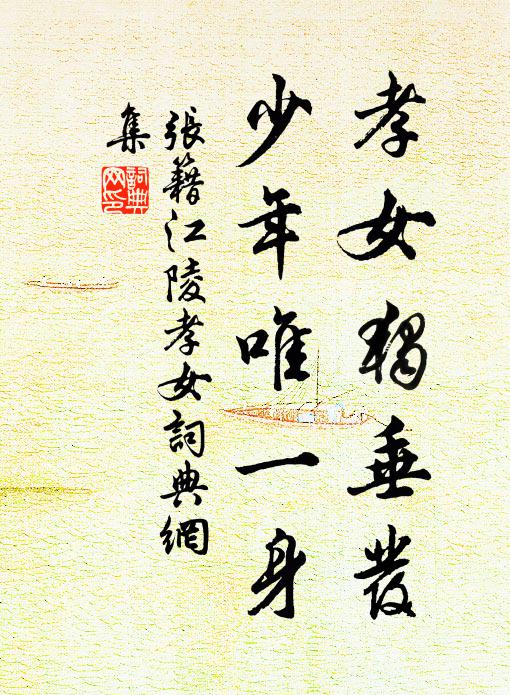 孝女獨垂發
少年唯一身
張籍江陵孝女詞典網
集
詞典
网印